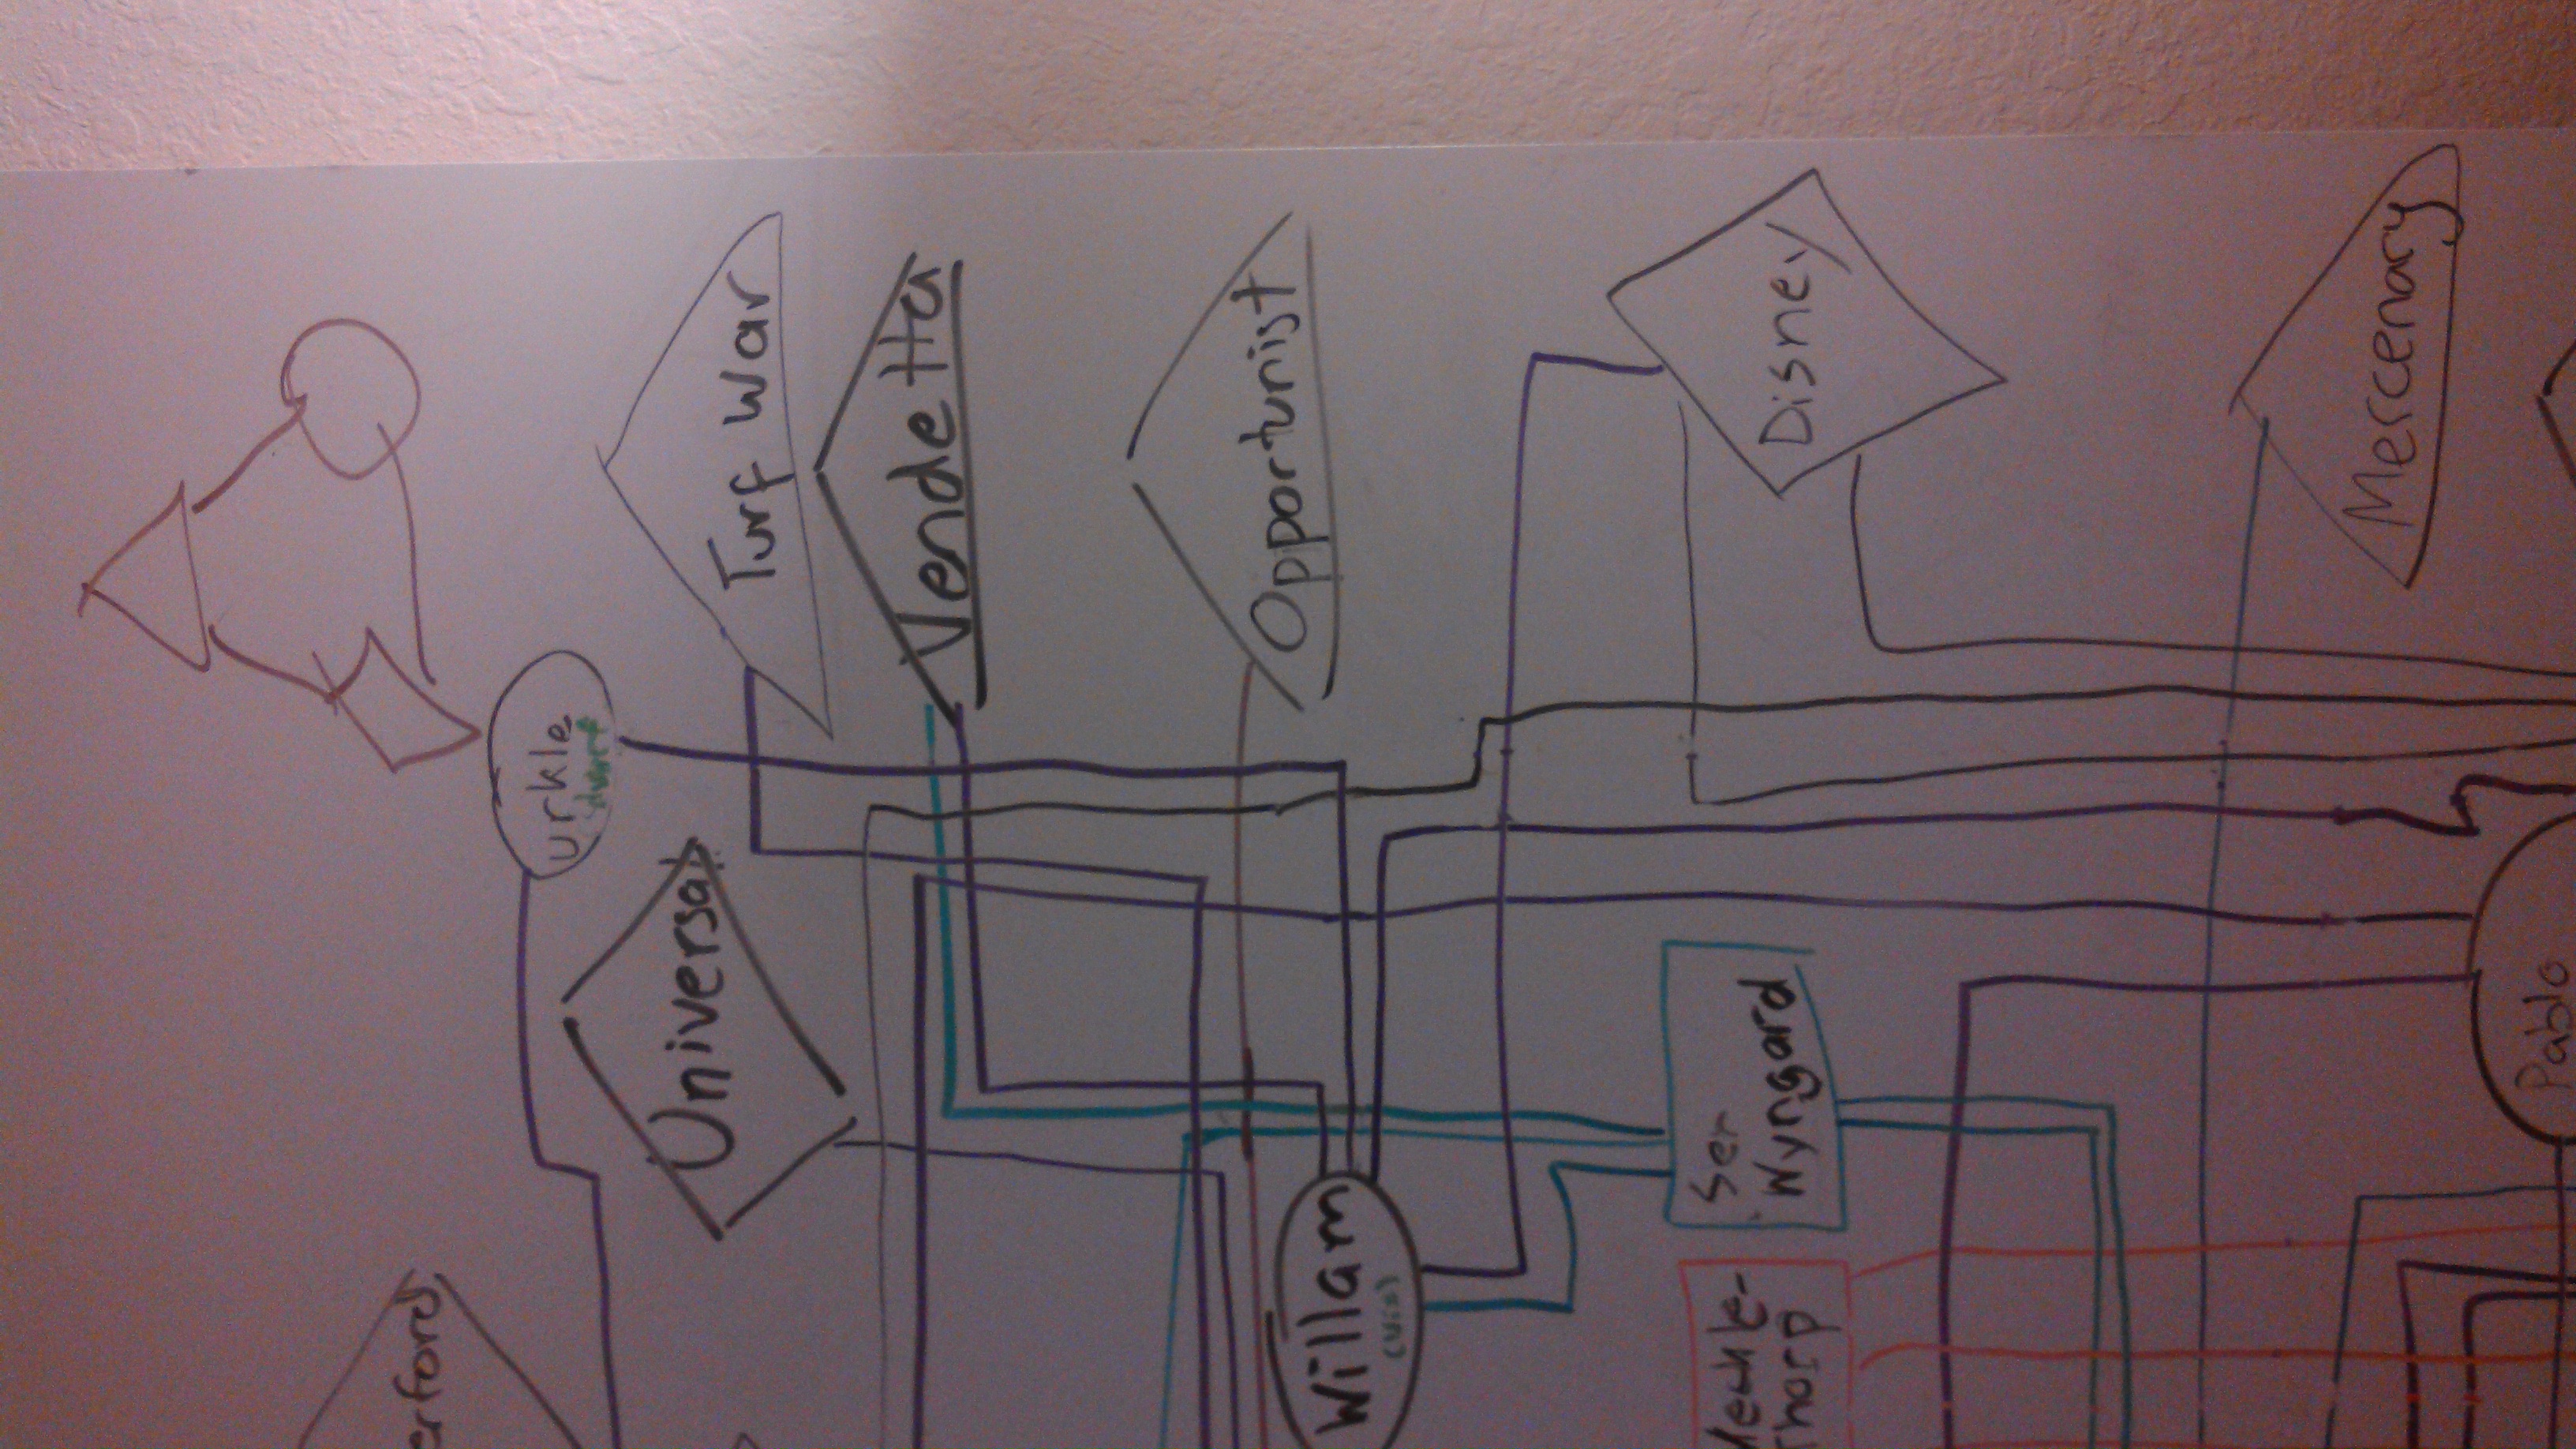 erford
urkle
dwarf
Universal
Turf War
Vendetta
Opportunist
Willam
(Vix)
Ser
Wyngard
Meckle-
Thorp
Disney
Mercenary
Pablo